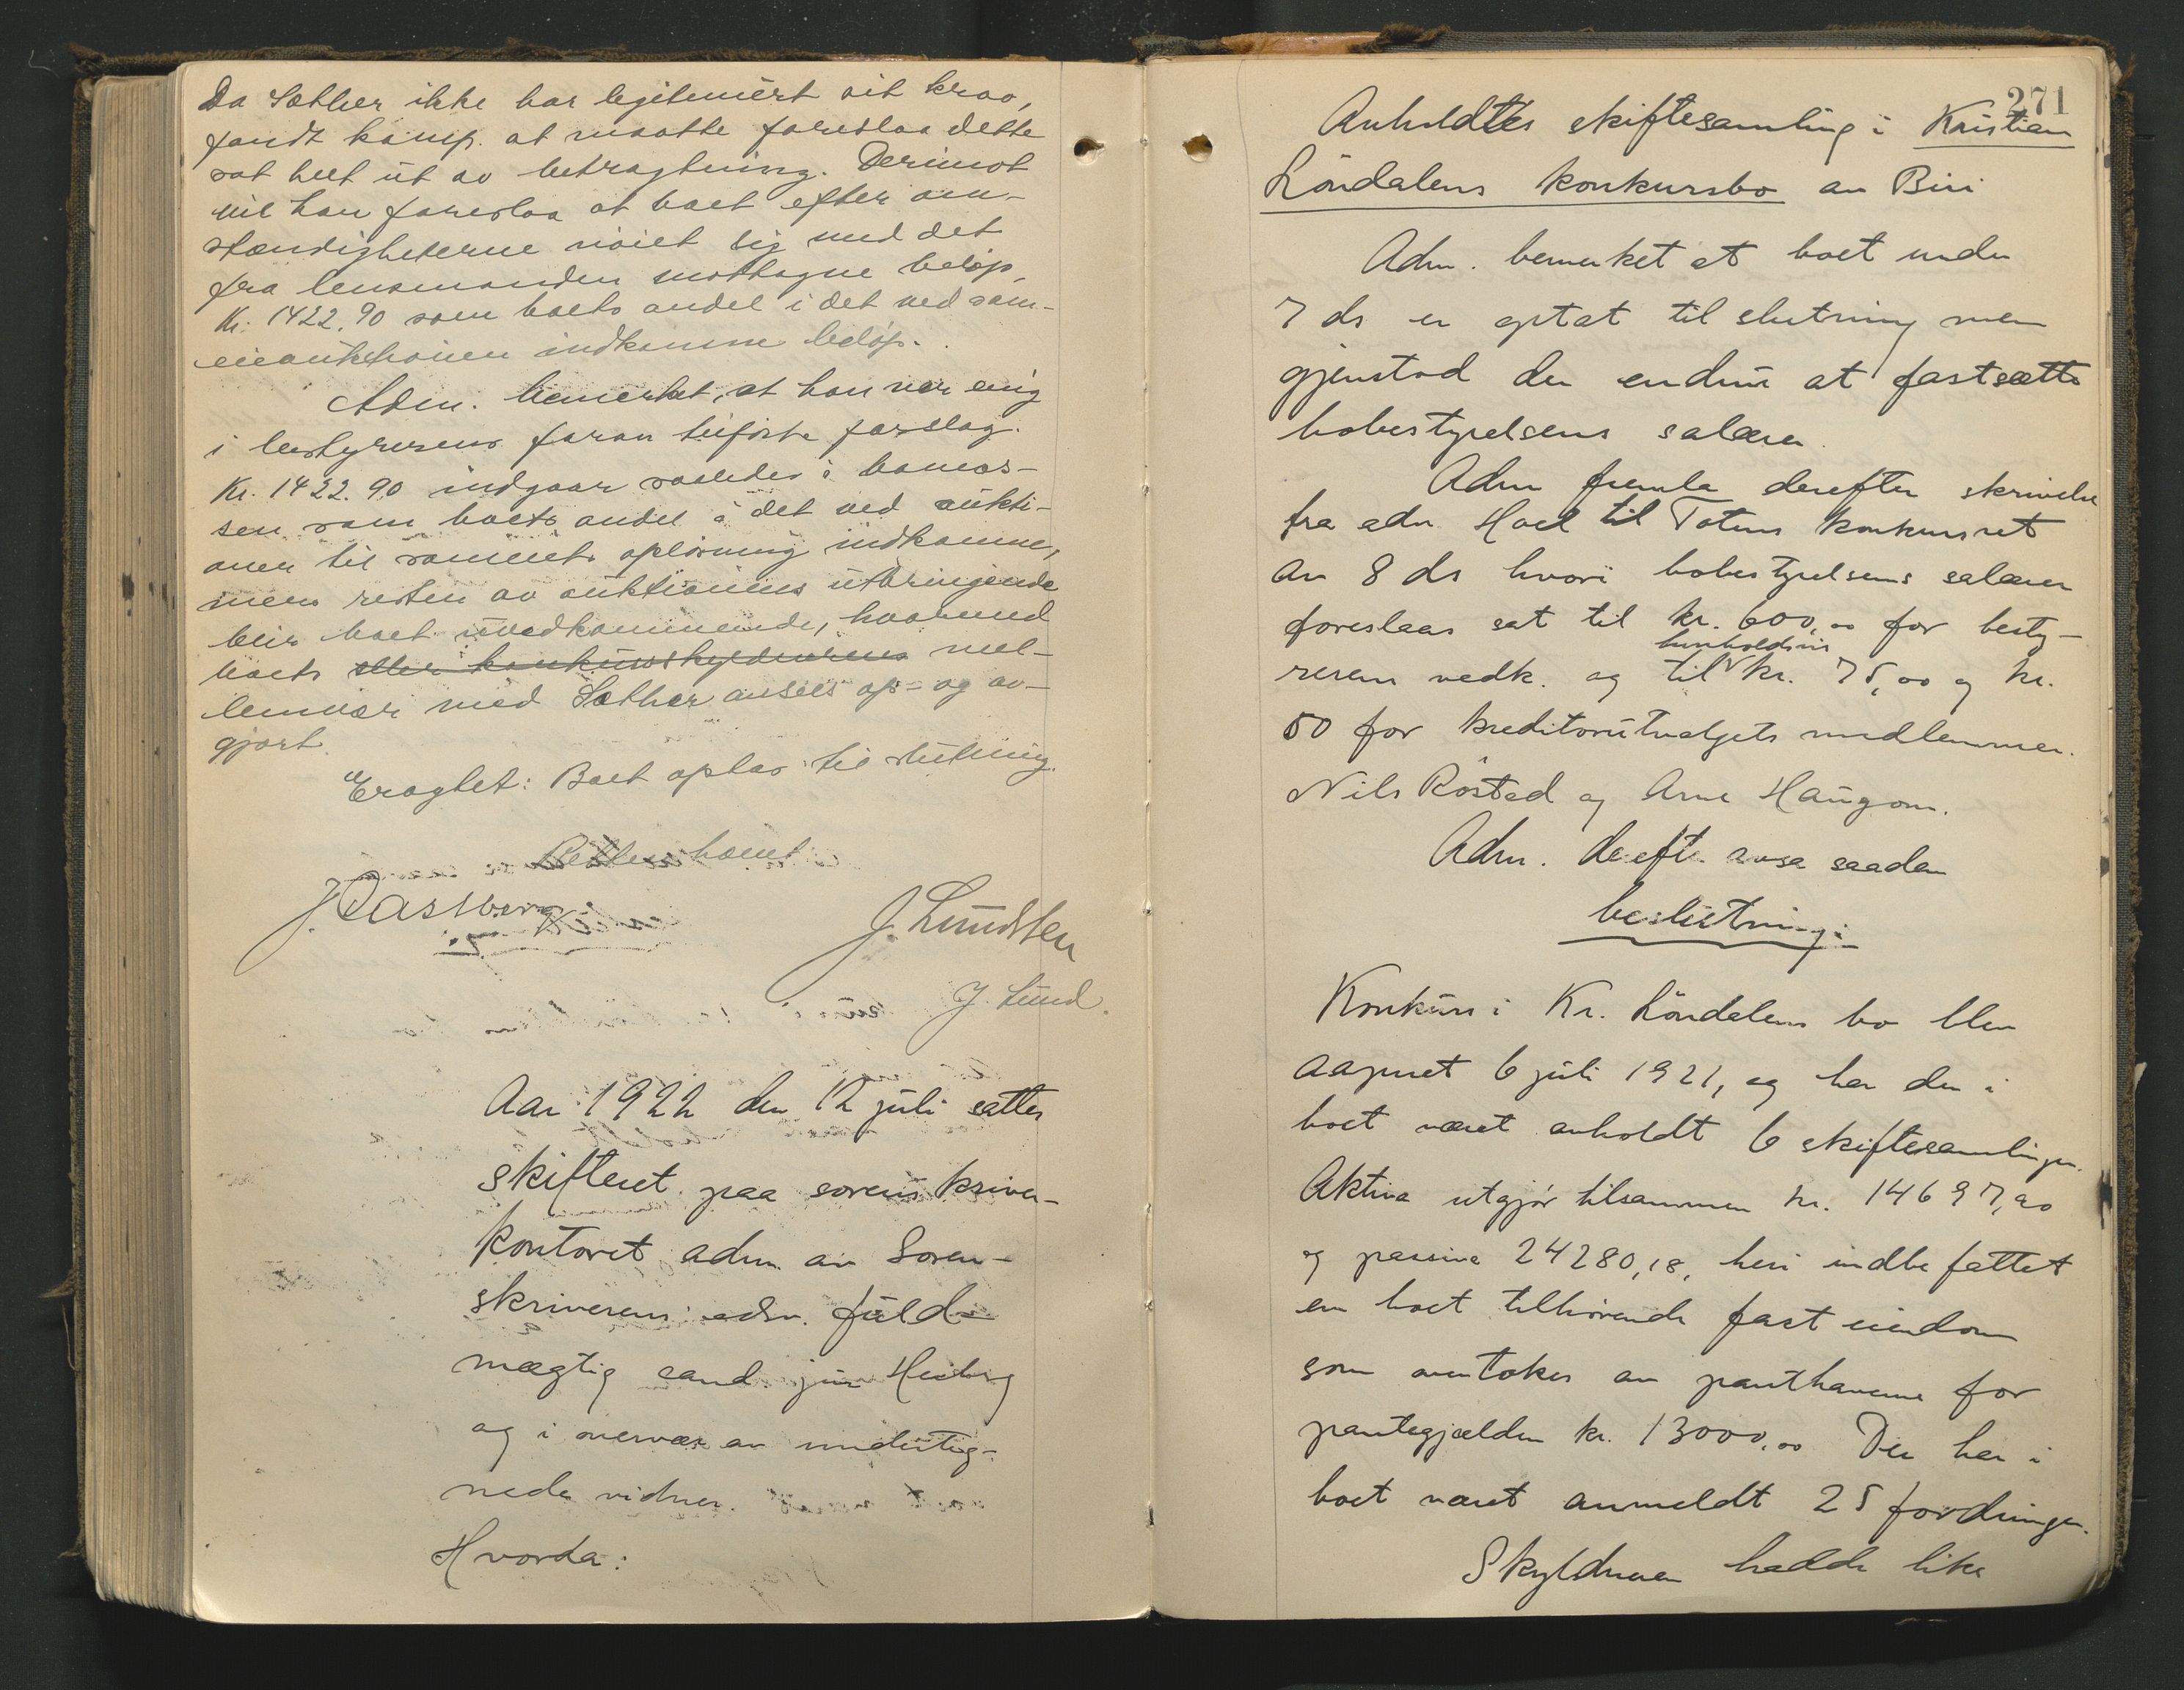 Da Sæther ikke har legitimert sit krav,
fandt komp. at maatte foreslaa dette
sat helt ut av betragtning. Derimot
vil han foreslaa at boet efter om-
stændigheterne nøiet sig med det
fra lensmanden mottagne beløp,
Kr. 1422.90 som boets andel i det ved sam-
eieauktionen indkomne beløp.
Adm. bemerket, at han var enig
i bestyrerens foran tilførte forslag.
Kr. 1422.90 indgaar saaledes i bomas-
sen som boets andel i det ved aukti-
oner til sameiets opløsning indkomne,
mens resten av auktionens utbringende
blir boet uvedkommende, hvormed
boets eller konkursskyldnerens mel-
lemvær med Sæther ansees op- og av-
gjort.
Eragtet: Boet optas til slutning.
Retten hævet
J. Passberg
J. Lundsten
J. Lund.
Aar 1922 den 12 juli sattes
skifteret paa sorenskriver-
kontoret adm. av Soren-
skriverens edsv. fuld-
mægtig cand. jur Heiberg
og i overvær av underteg-
nede vidner.
Hvorda:
271
Anholdtes skiftesamling i Kristian
Löndalens konkursbo av Biri
Adm. bemerket at boet under
7 ds er optat til slutning men
gjenstod der endnu at fastsætte
bobestyrelsens salærer.
Adm fremla derefter skrivelse
fra adv. Hoel til Totens konkursret
av 8 ds hvori bobestyrelsens salærer
foreslaaes sat til kr. 600,00 for besty-
henholdsvis
rerens vedk. og til kr. 75,00 og kr.
50 for kreditorutvalgets medlemmer.
Nils Røstad og Arne Haugom.
Adm. dereft. avsa saadan
beslutning:
Konkurs i Kr. Löndalens bo blev
aapnet 6 juli 1921, og har der i
boet været avholdt 6 skiftesamlinger.
Aktiva utgjør tilsammen kr. 14697,90
og passiva 24280,18, heri indbefattet
en boet tilhørende fast eiendom
som overtokes av panthaverne for
pantegjælden kr. 13000,00 Der har i
boet været anmeldt 25 fordringer.
Skyldneren hadde like